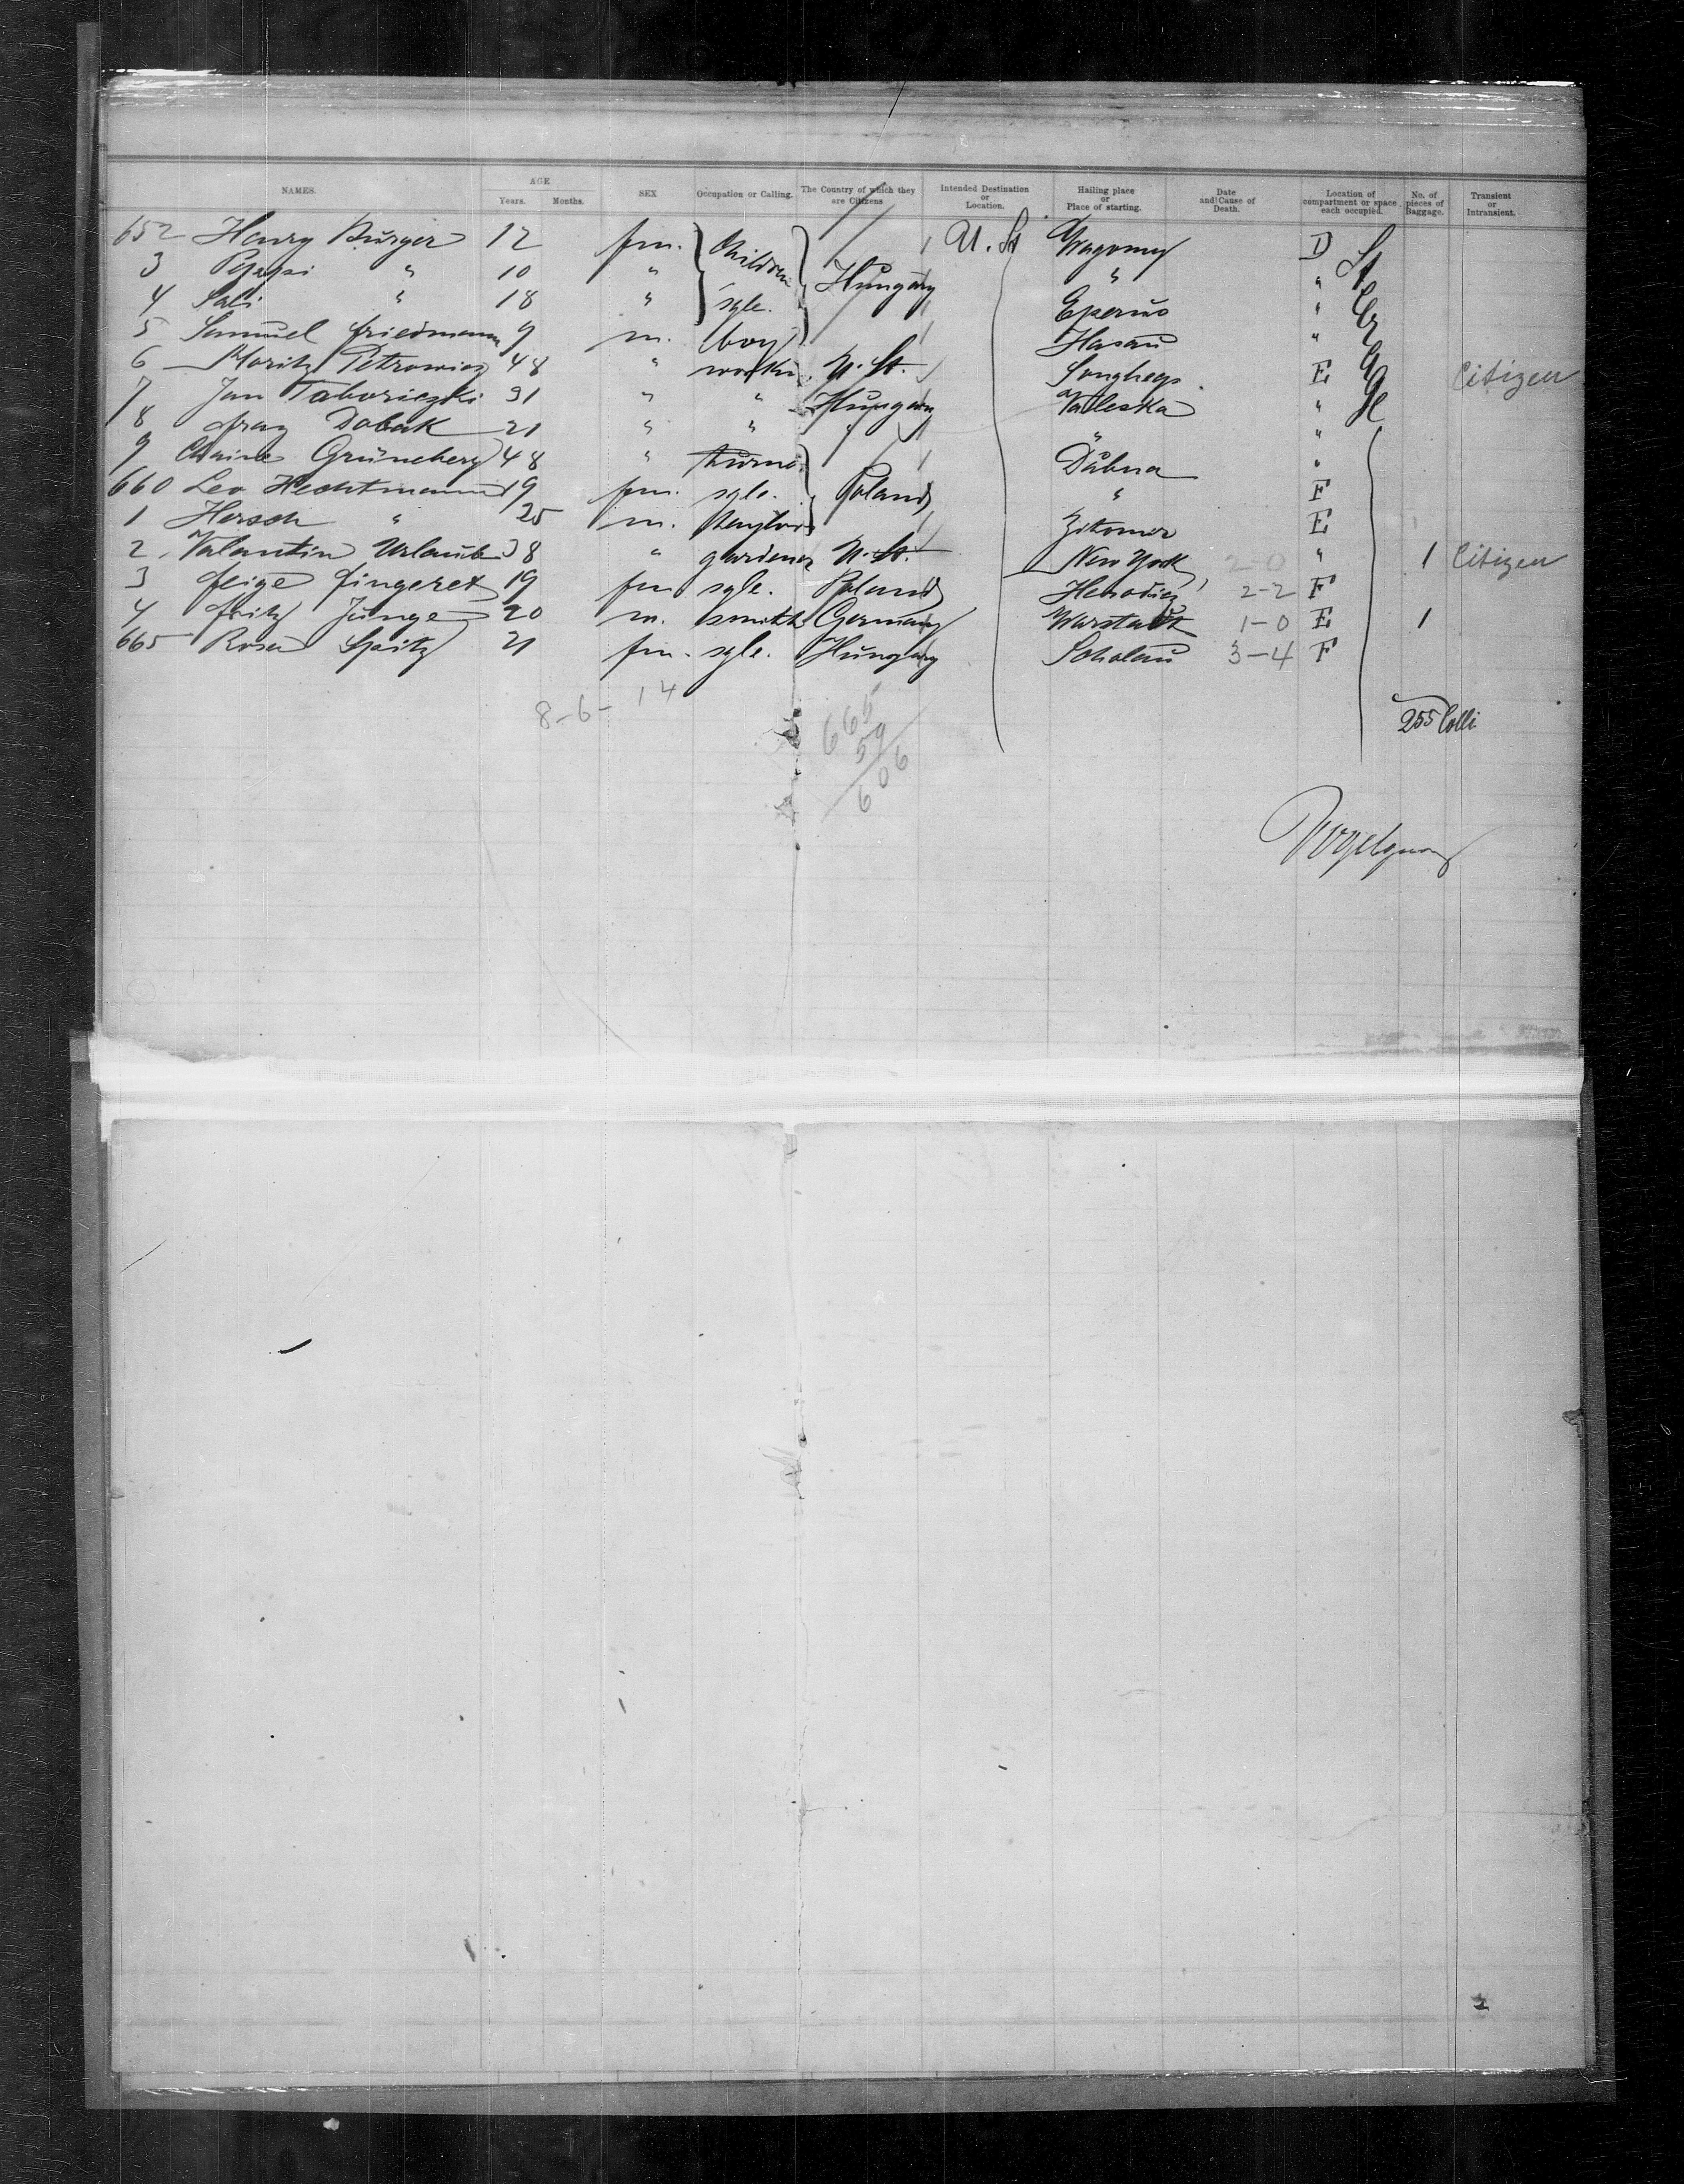 NAMES. AGE Years. Months. SEX Occupation or Calling. The Country of which they are Citizens Intended Destination or Location. Hailing place or Place of starting. Date and Cause of Death. Location of compartment or space each occupied. No. of pieces of Baggage. Transient or Intransient.
652 Henry Burger 12 fm. Children U. St D
3 " 10 " Hungary " "
4 Sali " 18 " sgle. Eperus "
5 Samuel Friedmann 9 m. boy Hasau "
6 Moritz Petrowicz 48 " workm. U. St. E Citizen
7 Jan 31 " " Hungary Valeska "
8 Franz Dobak 21 " " " " "
9 Chaine Grüneberg 48 " Dübna "
660 Leo Hechtmann 19 fm. sgle. Poland " F
1 Hersch " 25 m. Zitomir E
2 Valantin Urlaub 38 " gardener U. St. New York 2-0 " 1 Citizen
3 Feige Fingeret 19 fm sgle. Poland 2-2 F
4 Fritz Junge 20 m. smith Germany Warstadt 1-0 E 1
665 Rosa Spitz 21 fm. sgle. Hungary Scholau 3-4 F
8-6- 14
665
59
606
255 Colli
2